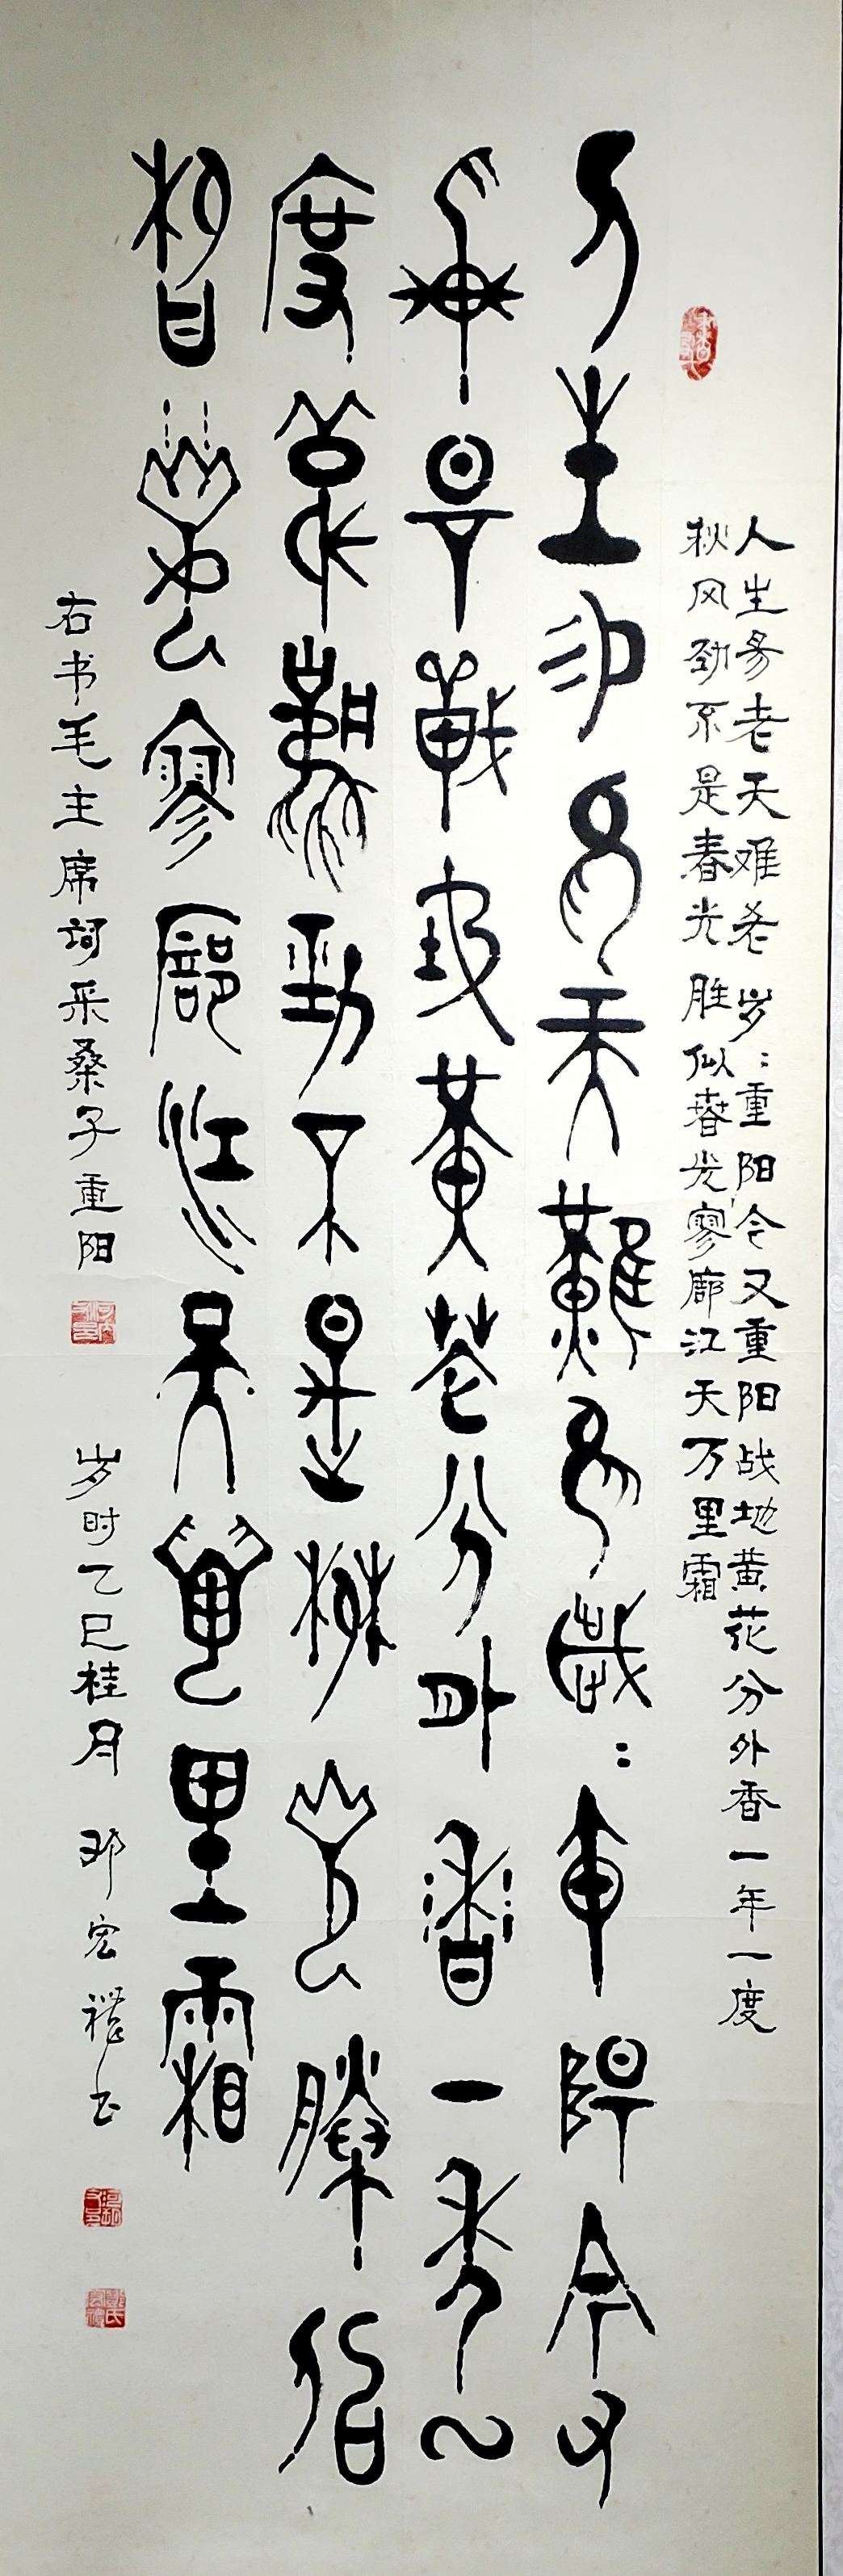 人生易老天难老岁:重阳今又重阳战地黄花分外香一年一度
秋风劲不是春光胜似春光寥廓江天万里霜
人生易老天難老歲:重陽今又
重昜戰地黃花分外香一年一
度秋風勁不是春光勝似
春光寥廓江天萬里霜
右书毛主席词采桑子重阳 岁时乙巳桂月 邓宏禮书